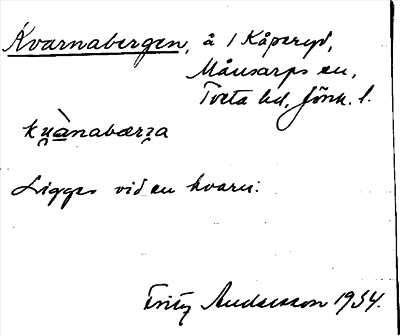 Kvarnabergen, å 1 Kåperyd,
Månsarps sn,
Tveta hd, Jönk. l.
kṷànabærɀa
Ligger vid en kvarn.
Fritz Andersson 1934.